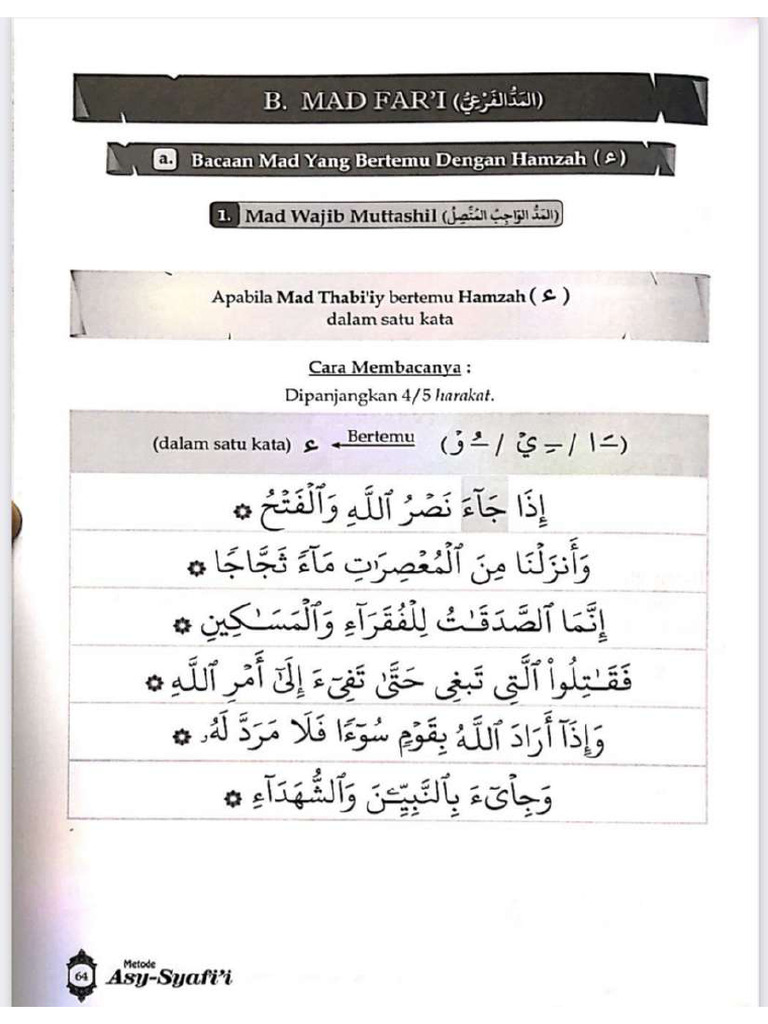 B. MAD FAR'I (المَدُّ الفَرْعِيُّ)
a. Bacaan Mad Yang Bertemu Dengan Hamzah ( ء )
1. Mad Wajib Muttashil (المَدُّ الوَاجِبُ المُتَّصِلُ)
Apabila Mad Thabi'iy bertemu Hamzah ( ء )
dalam satu kata
Cara Membacanya :
Dipanjangkan 4/5 harakat.
(ـَا / ـِيْ / ـُوْ) Bertemu ← ء (dalam satu kata)
إِذَا جَآءَ نَصْرُ ٱللَّهِ وَٱلْفَتْحُ ۞
وَأَنزَلْنَا مِنَ ٱلْمُعْصِرَٰتِ مَآءً ثَجَّاجًا ۞
إِنَّمَا ٱلصَّدَقَـٰتُ لِلْفُقَرَآءِ وَٱلْمَسَـٰكِينِ ۞
فَقَـٰتِلُوا۟ ٱلَّتِى تَبْغِى حَتَّىٰ تَفِىٓءَ إِلَىٰٓ أَمْرِ ٱللَّهِ ۞
وَإِذَآ أَرَادَ ٱللَّهُ بِقَوْمٍ سُوٓءًا فَلَا مَرَدَّ لَهُۥ ۞
وَجِا۟ىٓءَ بِٱلنَّبِيِّـۧنَ وَٱلشُّهَدَآءِ ۞
64 Metode
Asy-Syafi'i